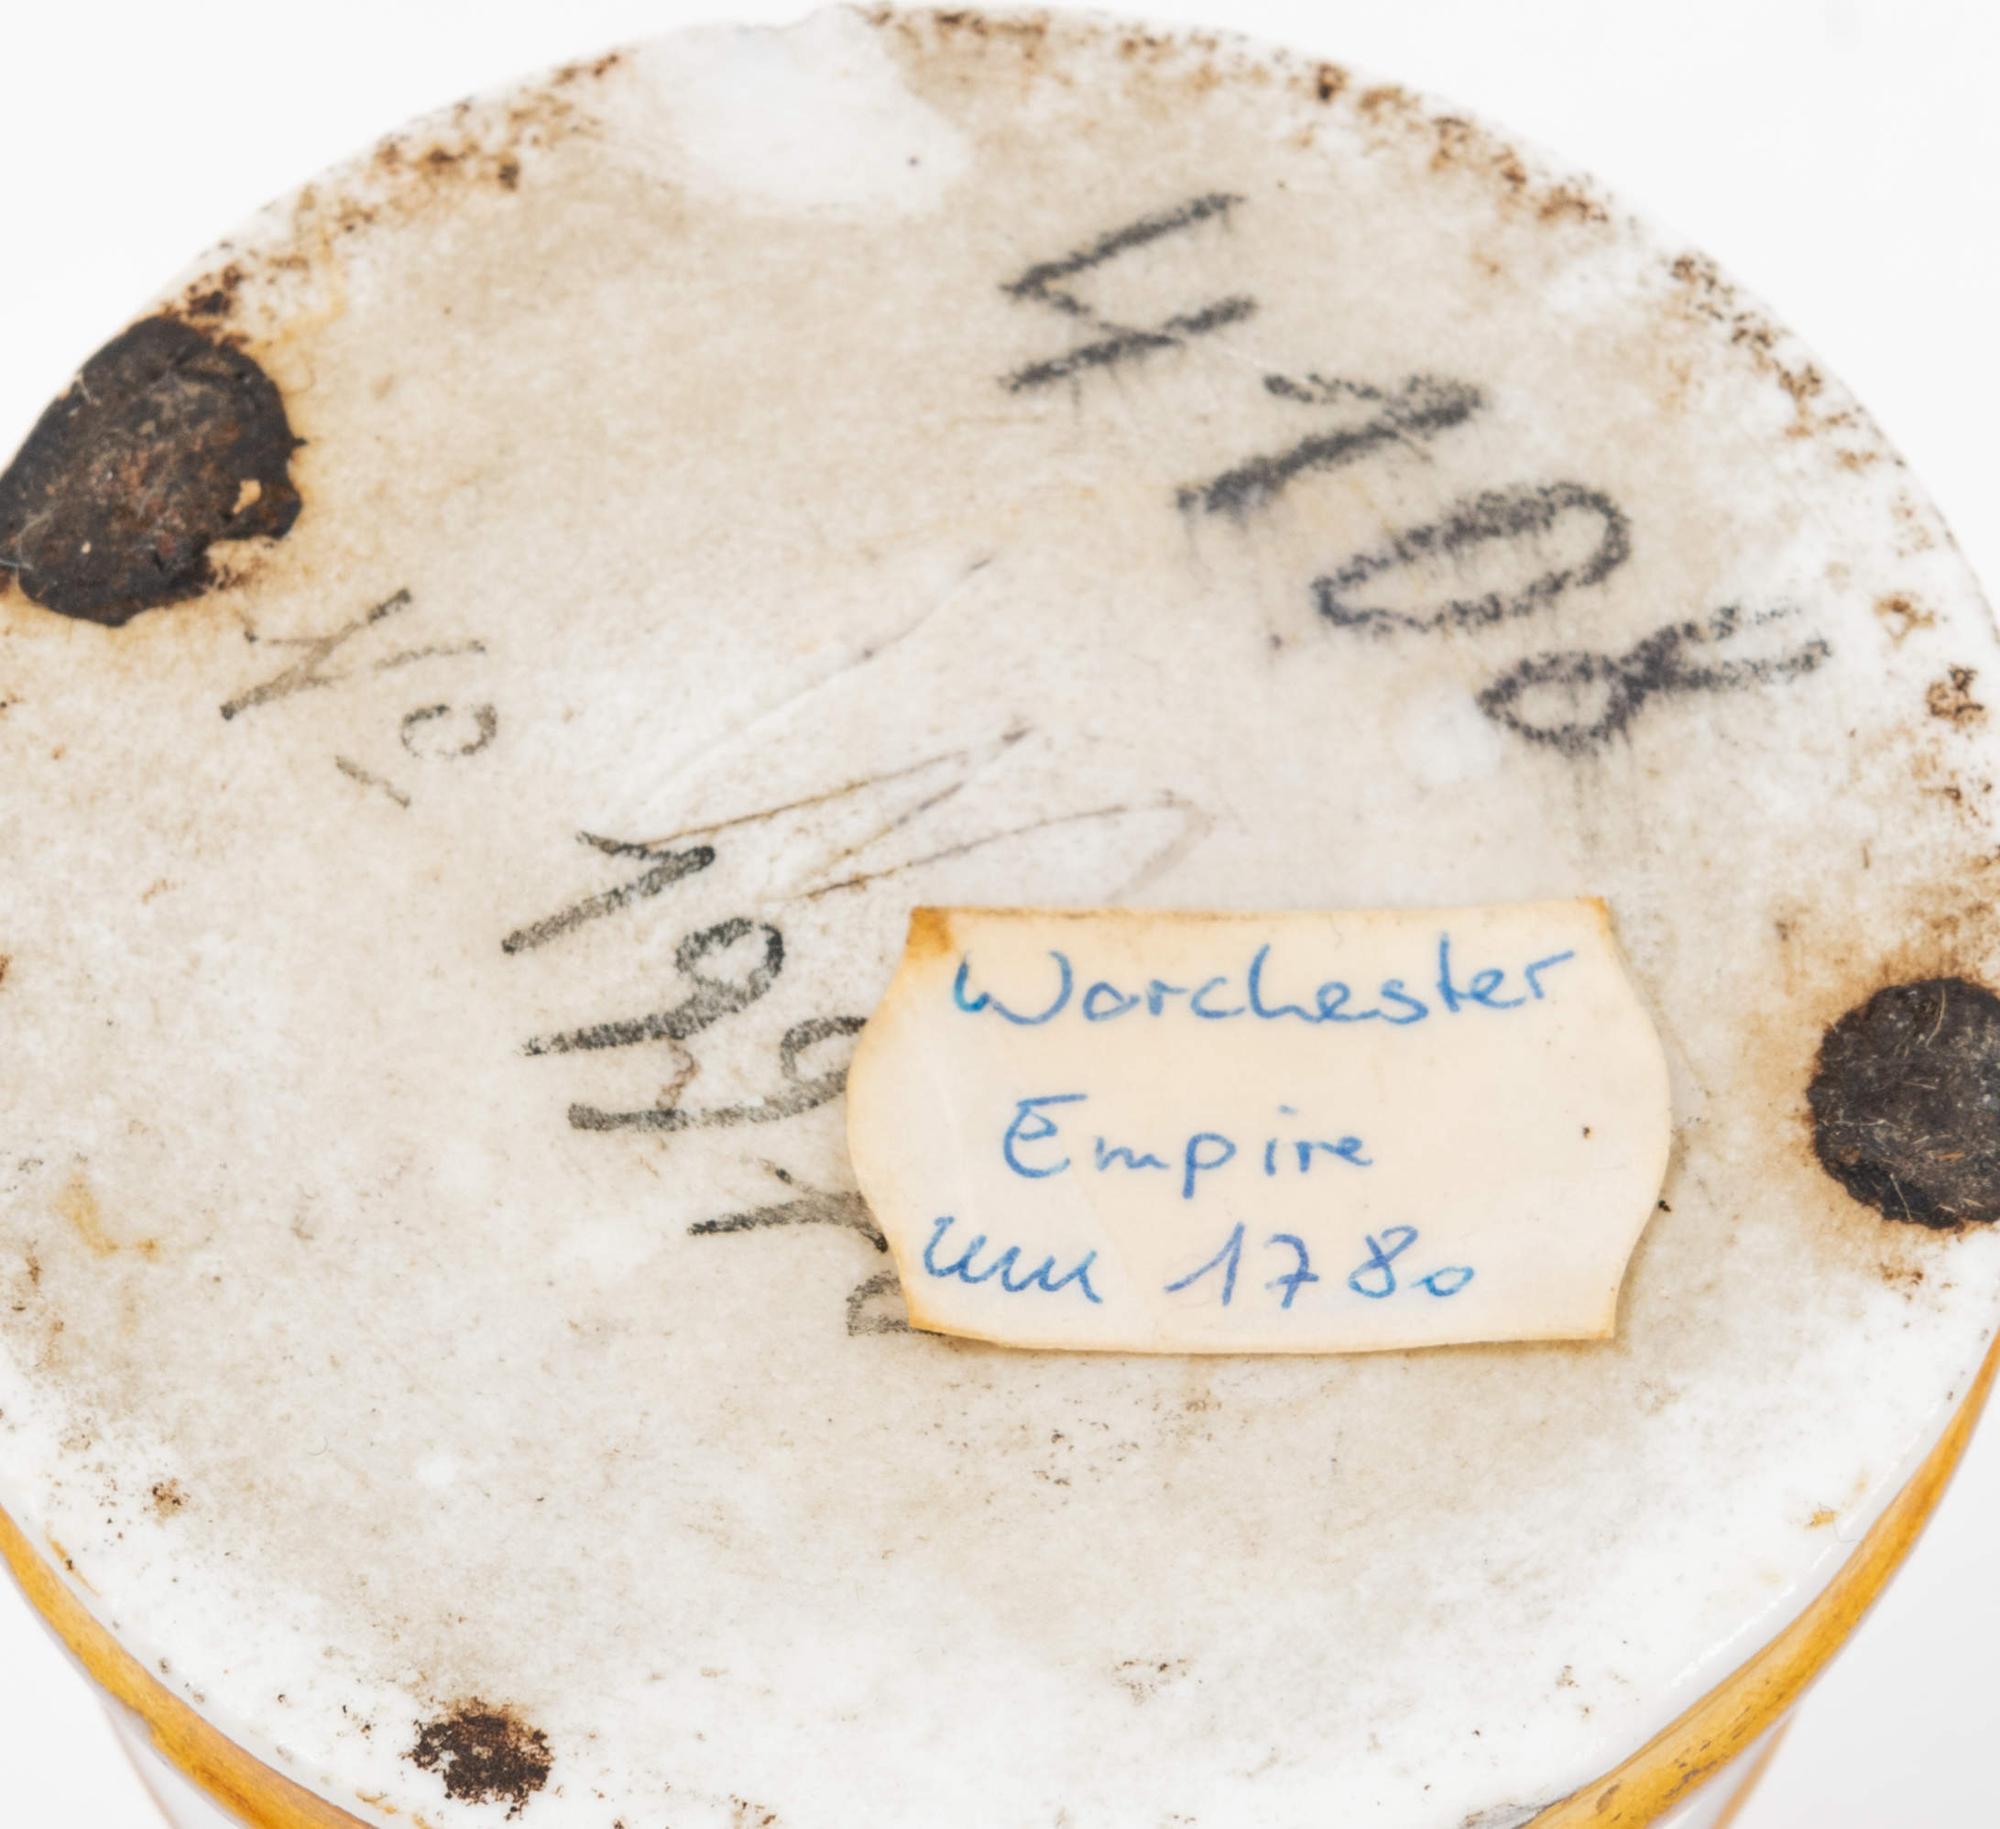 4108
No
Worchester
Empire
um 1780